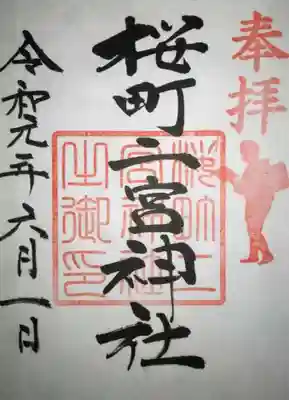 奉拝
桜町二宮神社
桜町二宮神社之御印
令和元年六月一日